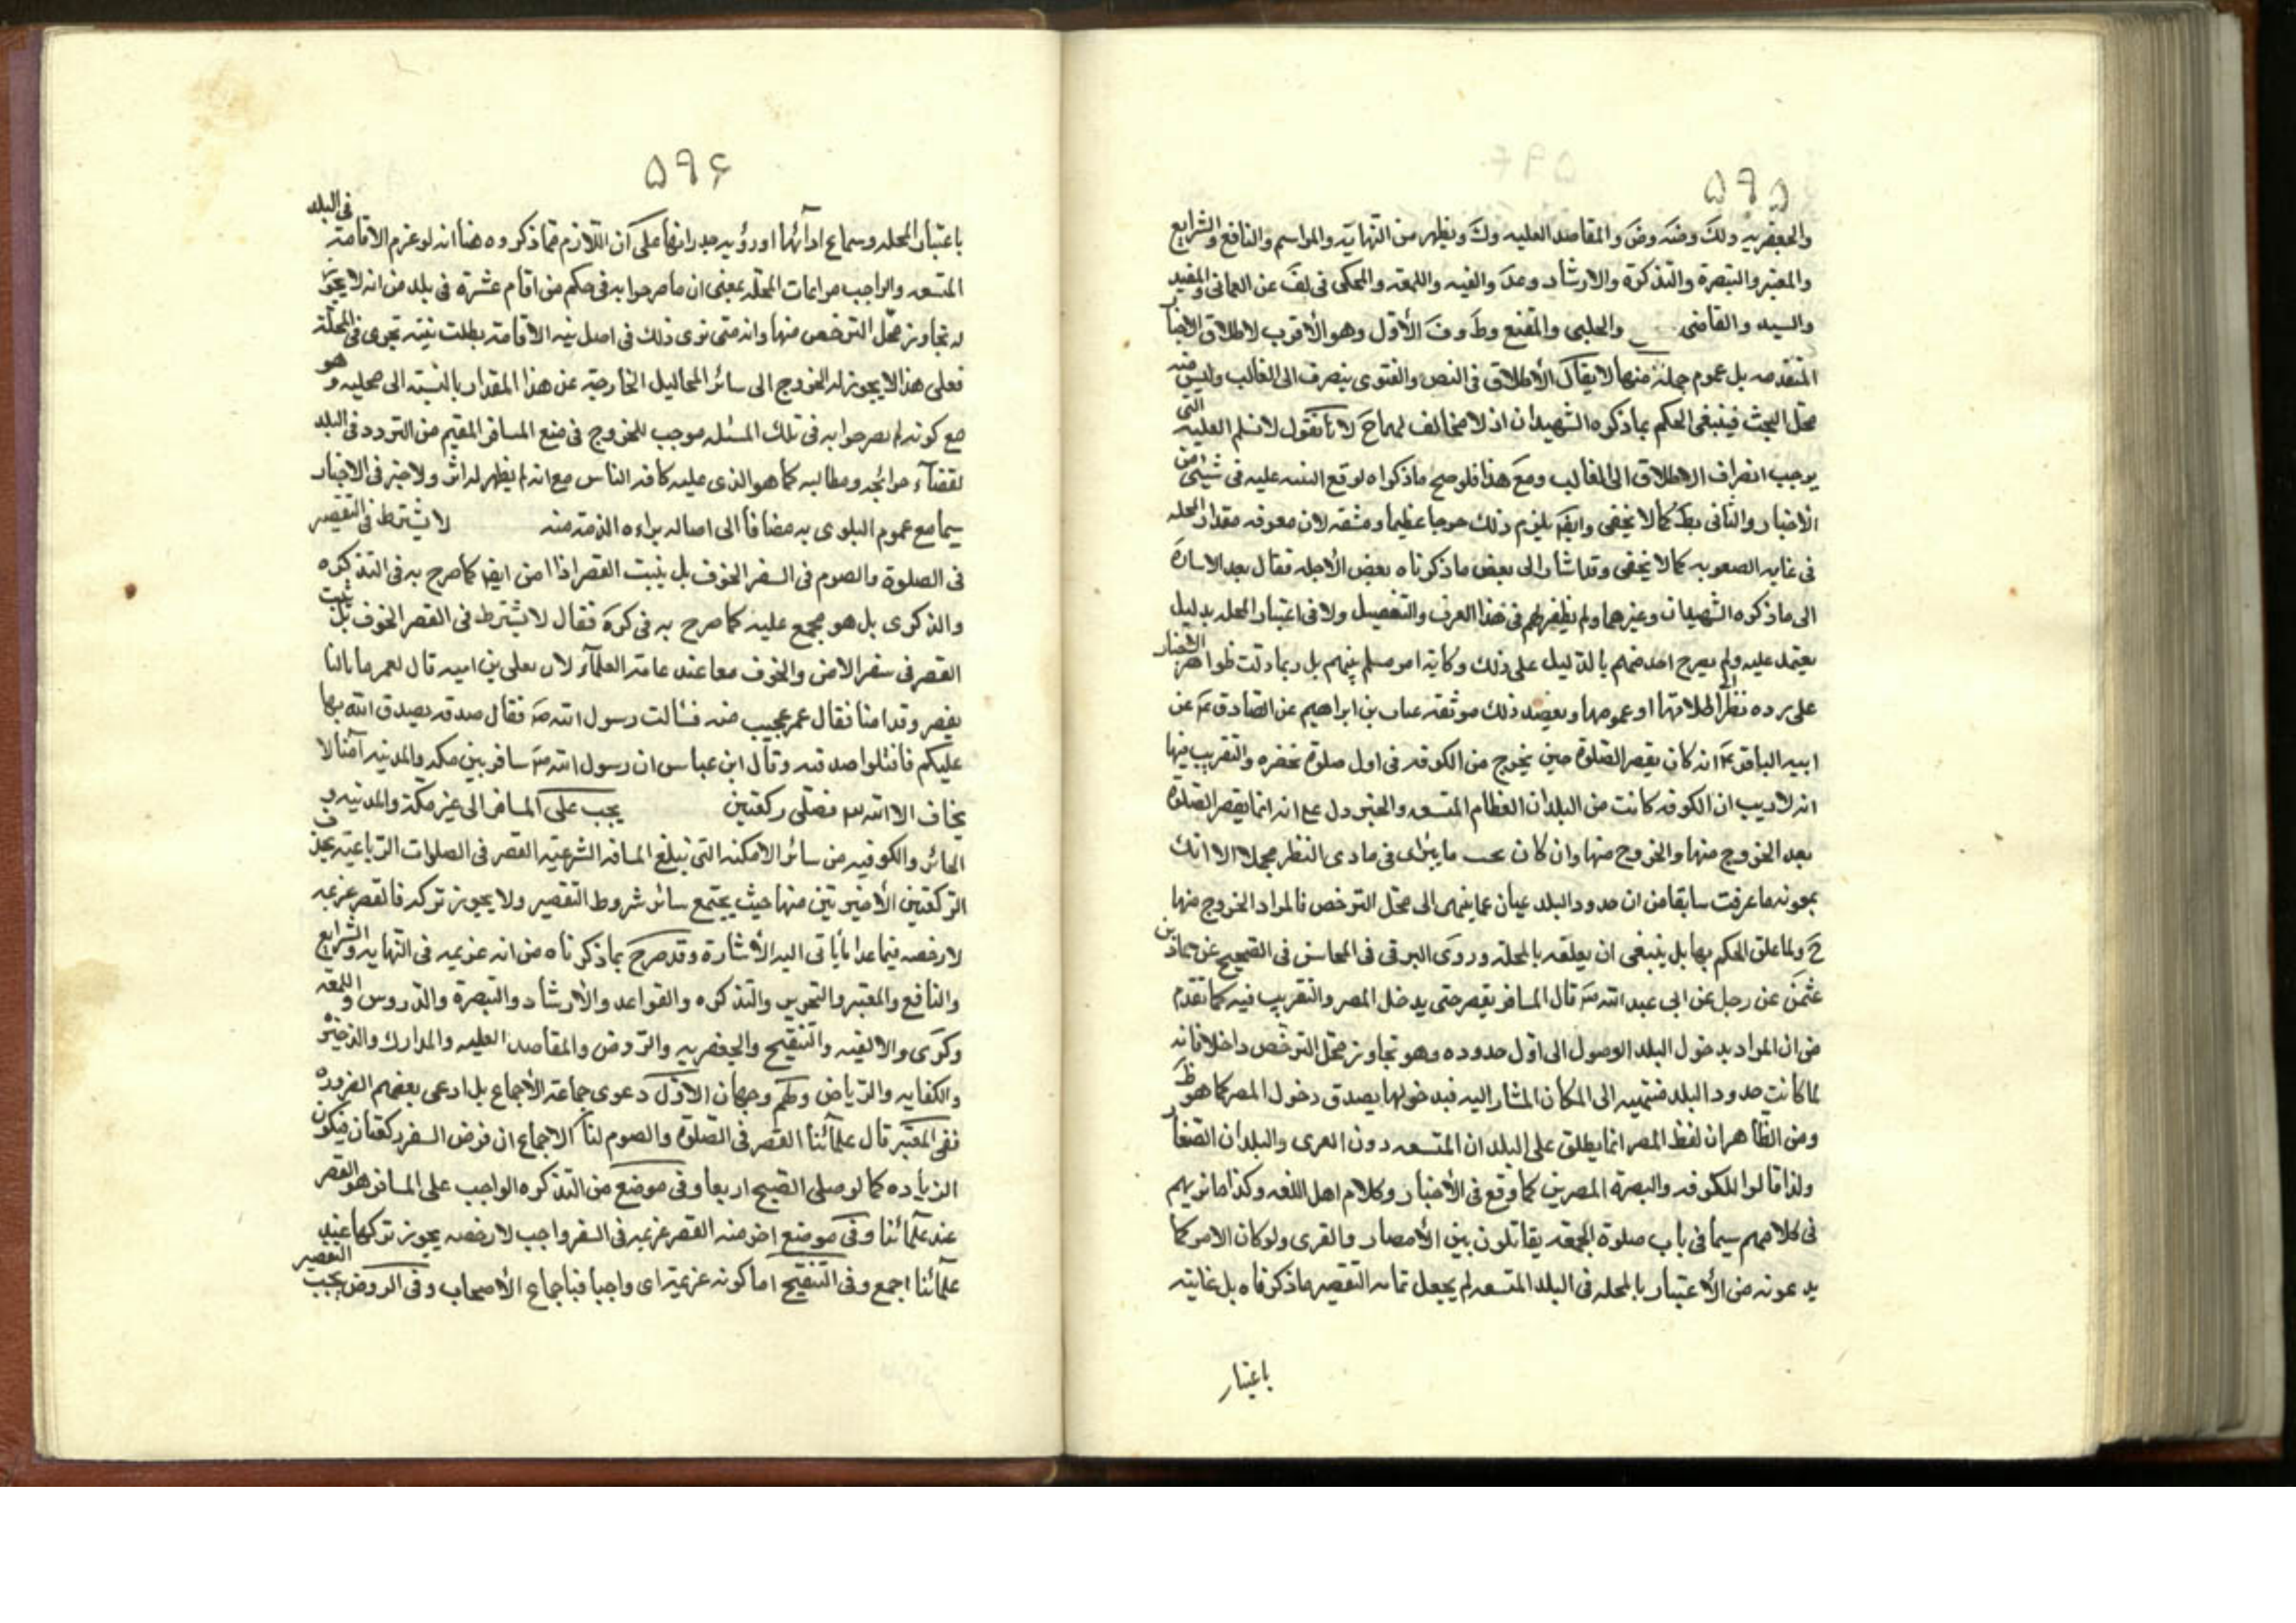 ۵۹۵
والجعفريه ولك وضه وض والمقاصد العليه وك ويظهر من النهاية والمراسم والنافع والشرايع
والمعتبر والتبصرة والتذكرة والارشاد وعد والفيه واللمعه والمحكى فى لف عن العمانى والمفيد
والسيد والقاضى والحلبى والمقنع وط وف الأول وهو الأقرب لاطلاق الاخبار
المتقدمه بل عموم جملة منها لا يقال الأطلاق فى النص والفتوى ينصرف الى الغالب وليس منه
محل البحث فينبغى الحكم بما ذكره الشهيدان اذ لا مخالف لهما ح لانا نقول لا نسلم الغلبه التى
يوجب انصراف الاطلاق الى الغالب ومع هذا فلو صح ما ذكراه لوقع التنبيه عليه فى شيئ من
الأخبار والثانى بط كما لا يخفى وايضا يلزم ذلك حرجا عظيما ومشقه لان معرفه مقدار المحله
فى غايه الصعوبه كما لا يخفى وقد اشار الى بعض ما ذكرناه بعض الأجله فقال بعد الاشارة
الى ما ذكره الشهيدان وغيرهما ولم يظفر لهم فى هذا الفرق والتفصيل ولا فى اعتبار المحله بدليل
يعتمد عليه ولم يصرح احد منهم بالدليل على ذلك وكانه امر مسلم بينهم بل ربما دلت ظواهر الاخبار
على رده نظرا الى اطلاقها او عمومها ويعضد ذلك موثقه غياث بن ابراهيم عن الصادق ع عن
ابيه الباقر ع انه كان يقصر الصلوة حين يخرج من الكوفه فى اول صلوة تحضره والتقريب فيها
انه لا ريب ان الكوفه كانت من البلدان العظام المتسعه والخبر دل على انه انما يقصر الصلوة
بعد الخروج منها والخروج منها وان كان بحسب ما يتراى فى بادى النظر مجملا الا انك
بمعونه ما عرفت سابقا من ان حدود البلد عبارة عما ينتهى الى محل الترخص فالمراد الخروج منها
ح ولما علق الحكم بها بل ينبغى ان يعلقه بالمحله وروى البرقى فى المحاسن فى الصحيح عن حماد بن
عثمن عن رجل عن ابى عبد الله ع قال المسافر يقصر حتى يدخل المصر والتقريب فيه كما تقدم
من ان المراد بدخول البلد الوصول الى اول حدوده وهو تجاوز محل الترخص داخلا فانه
لما كانت حدود البلد منتهيه الى المكان المشار اليه فبدخولها يصدق دخول المصر كما هو ظ
ومن الظاهر ان لفظ المصر انما يطلق على البلدان المتسعه دون القرى والبلدان الصغار
ولذا قالوا للكوفه والبصرة المصرين كما وقع فى الأخبار وكلام اهل اللغه وكذا ما تريهم
فى كلامهم سيما فى باب صلوة الجمعه يقابلون بين الأمصار والقرى ولو كان الامر كما
يدعونه من الأعتبار بالمحله فى البلد المتسعه لم يجعل غايه التقصير ما ذكرناه بل غايته
باعتبار
۵۹۶
باعتبار المحله وسماع اذانها او رؤيه جدرانها على أن اللازم مما ذكروه هنا انه لو عزم الاقامة فى البلد
المتسعه والواجب مراعات المحله بمعنى ان ما صرحوا به فى حكم من اقام عشرة فى بلد من انه لا يجوز
له تجاوز محل الترخص منها وانه متى نوى ذلك فى اصل نيه الاقامة بطلت نيته يجرى فى المحلة
فعلى هذا لا يجوز له الخروج الى سائر المحاليل الخارجة عن هذا المقدار بالنسبة الى محليه وهو
مع كونه لم يصرحوا به فى تلك المسئله موجب للخروج فى منع المسافر المقيم من التردد فى البلد
لقضاء حوائجه ومطالبه كما هو الذى عليه كافه الناس مع انه لم يظهر له اثر ولا خبر فى الاخبار
سيما مع عموم البلوى به مضافا الى اصاله براءه الذمة منه لا يشترط فى التقصير
فى الصلوة والصوم فى السفر الخوف بل يثبت القصر اذا امن ايضا كما صرح به فى التذكره
والذكرى بل هو مجمع عليه كما صرح به فى كره فقال لا يشترط فى القصر الخوف بل يثبت
القصر فى سفر الامن والخوف معا عند عامة العلمآء لان يعلى بن اميه قال لعمر ما بالنا
نقصر وقد امنا فقال عمر عجبت منه فسالت رسول الله ص فقال صدقه تصدق الله بها
عليكم فاقبلوا صدقته وقال ابن عباس ان رسول الله ص سافر بين مكه والمدينه آمنا لا
يخاف الا الله فصلى ركعتين يجب على المسافر الى غير مكة والمدينه و
الحائر والكوفيه من سائر الامكنه التى تبلغ المسافه الشرعيه القصر فى الصلوات الرباعيه بحذف
الركعتين الأخيرتين منها حيث يجتمع سائر شروط التقصير ولا يجوز تركه فالقصر عزيمه
لا رخصه فيما عدا ما يأتى اليه الأشارة وقد صرح بما ذكرناه من انه عزيمه فى النهايه والشرايع
والنافع والمعتبر والتحرير والتذكره والقواعد والأرشاد والتبصرة والدروس واللمعه
وكرى والالفيه والتنقيح والجعفريه والروض والمقاصد العليه والمدارك والذخيره
والكفايه والرياض ولهم وجهان الاول دعوى جماعة الأجماع بل ادعى بعضهم الضروره
ففى المعتبر قال علمآئنا القصر فى الصلوة والصوم لنا الاجماع ان فرض السفر ركعتان فيكون
الزياده كما لو صلى الصبح اربعا وفى موضع من التذكره الواجب على المسافر هو القصر
عند علمائنا وفى موضع اخر منه القصر عزيمه فى السفر واجب لا رخصه يجوز تركها عند
علمآئنا اجمع وفى التنقيح اما كونه عزيمة اى واجبا فباجماع الأصحاب وفى الروض يجب التقصير